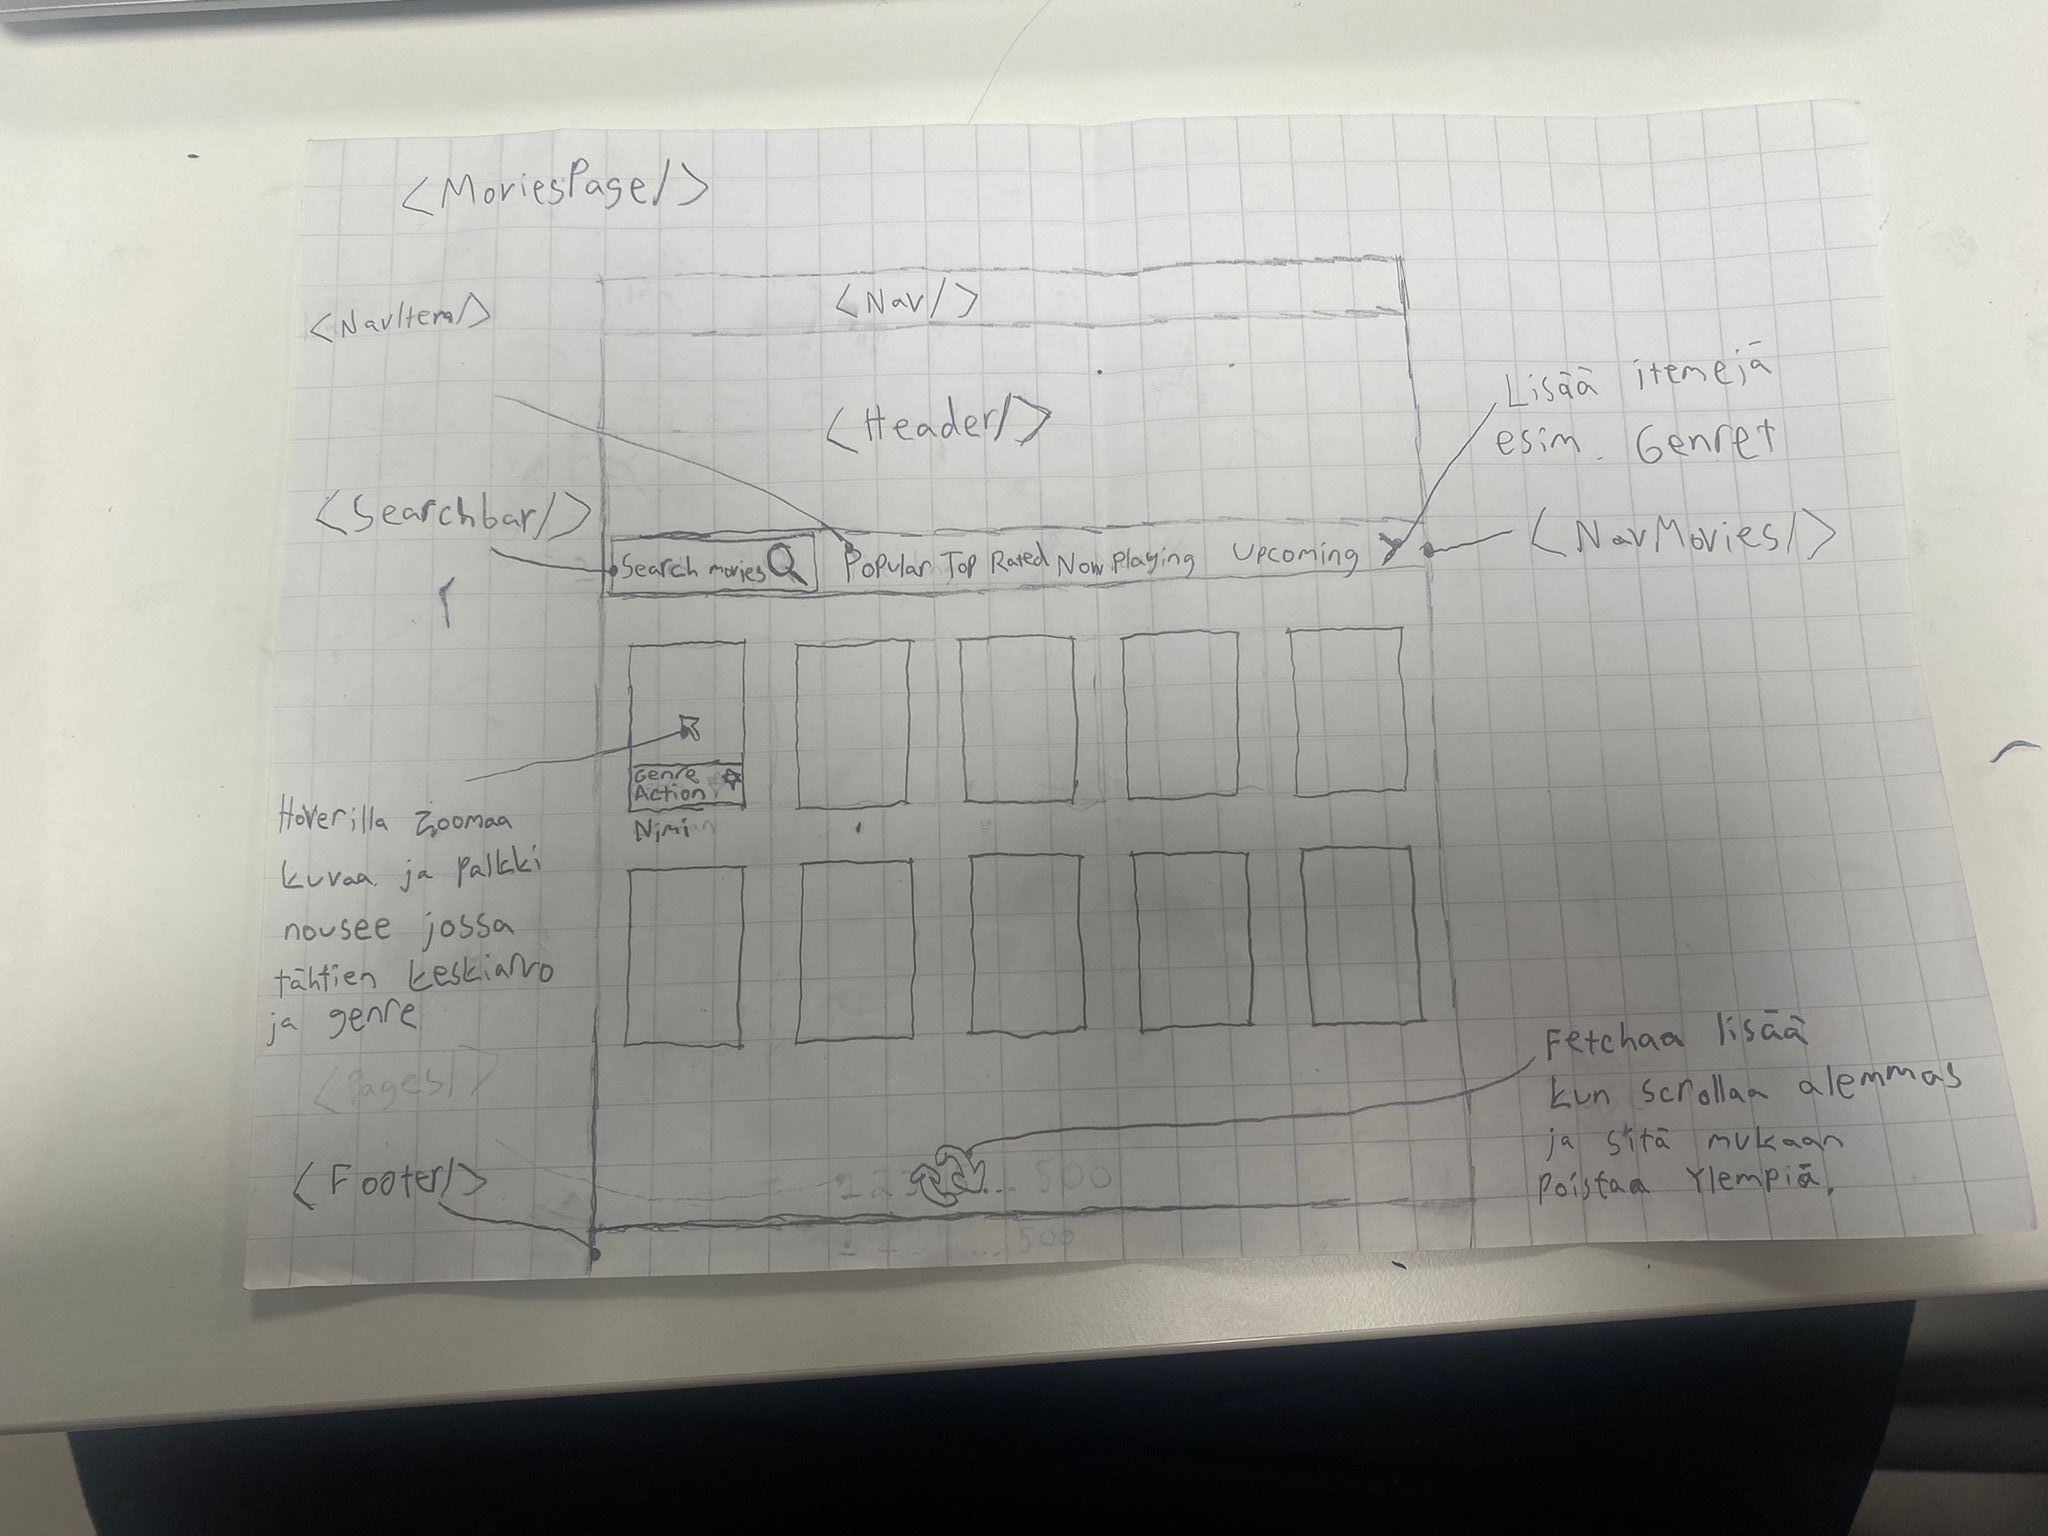 <MoviesPage/>
<Nav/>
<NavItem/>
<Header/>
Lisää itemejä
esim. Genret
<Searchbar/>
<NavMovies/>
Search movies Popular Top Rated Now Playing Upcoming
Genre
Action
Nimi
Hoverilla Zoomaa
kuvaa ja palkki
nousee jossa
tähtien keskiarvo
ja genre
<Pages/>
<Footer/>
Fetchaa lisää
kun scrollaa alemmas
ja sitä mukaan
poistaa Ylempiä.
1 2 3 ... 500
1 2 3 ... 500